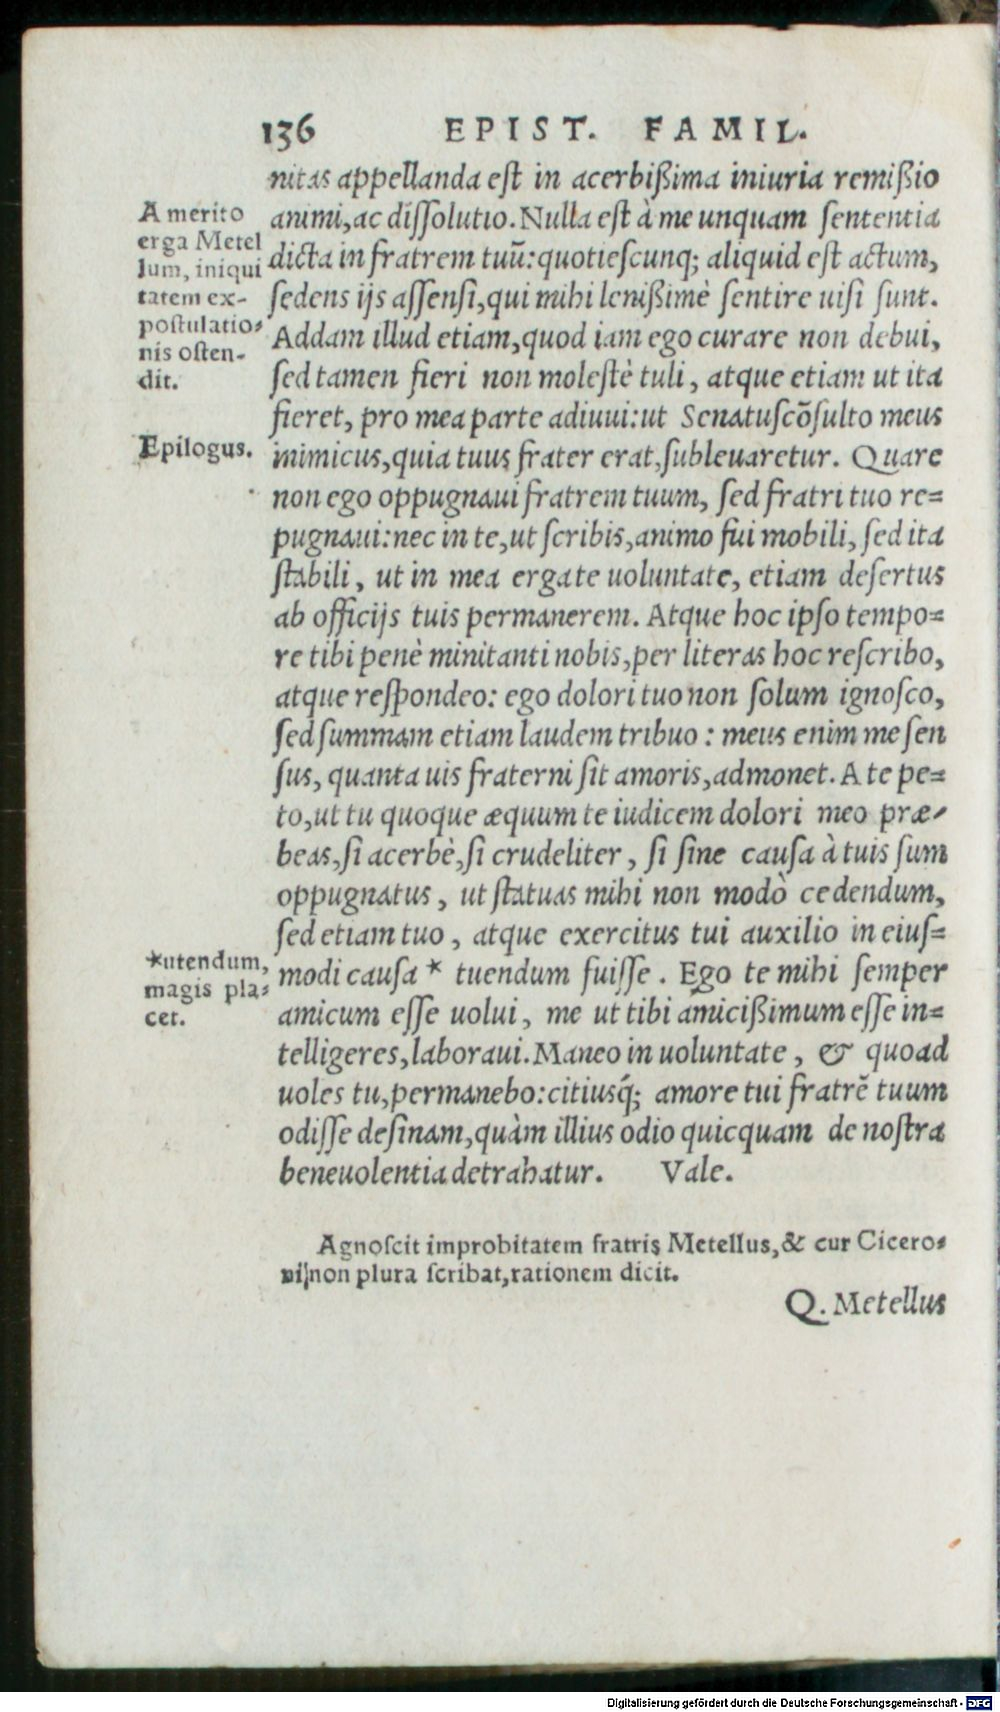 136 EPIST. FAMIL.
nitas appellanda eſt in acerbißima iniuria remißio
animi, ac diſſolutio. Nulla eſt à me unquam ſententia
dicta in fratrem tuū: quotieſcunq; aliquid eſt actum,
ſedens ijs aſſenſi, qui mihi lenißimè ſentire uiſi ſunt.
Addam illud etiam, quod iam ego curare non debui,
ſed tamen fieri non moleſtè tuli, atque etiam ut ita
fieret, pro mea parte adiuui: ut Senatuſcõſulto meus
inimicus, quia tuus frater erat, ſubleuaretur. Quare
non ego oppugnaui fratrem tuum, ſed fratri tuo re=
pugnaui: nec in te, ut ſcribis, animo fui mobili, ſed ita
ſtabili, ut in mea erga te uoluntate, etiam deſertus
ab officijs tuis permanerem. Atque hoc ipſo tempo=
re tibi penè minitanti nobis, per literas hoc reſcribo,
atque reſpondeo: ego dolori tuo non ſolum ignoſco,
ſed ſummam etiam laudem tribuo: meus enim me ſen
ſus, quanta uis fraterni ſit amoris, admonet. A te pe=
to, ut tu quoque æquum te iudicem dolori meo præ=
beas, ſi acerbè, ſi crudeliter, ſi ſine cauſa à tuis ſum
oppugnatus, ut ſtatuas mihi non modò cedendum,
ſed etiam tuo, atque exercitus tui auxilio in eiuſ=
modi cauſa * tuendum fuiſſe. Ego te mihi ſemper
amicum eſſe uolui, me ut tibi amicißimum eſſe in=
telligeres, laboraui. Maneo in uoluntate, & quoad
uoles tu, permanebo: citiusq́; amore tui fratrẽ tuum
odiſſe deſinam, quàm illius odio quicquam de noſtra
beneuolentia detrahatur. Vale.
A merito
erga Metel
lum, iniqui
tatem ex-
poſtulatio=
nis oſten-
dit.
Epilogus.
*utendum,
magis pla=
cet.
Agnoſcit improbitatem fratris Metellus, & cur Cicero=
ni non plura ſcribat, rationem dicit.
Q. Metellus
Digitalisierung gefördert durch die Deutsche Forschungsgemeinschaft - DFG